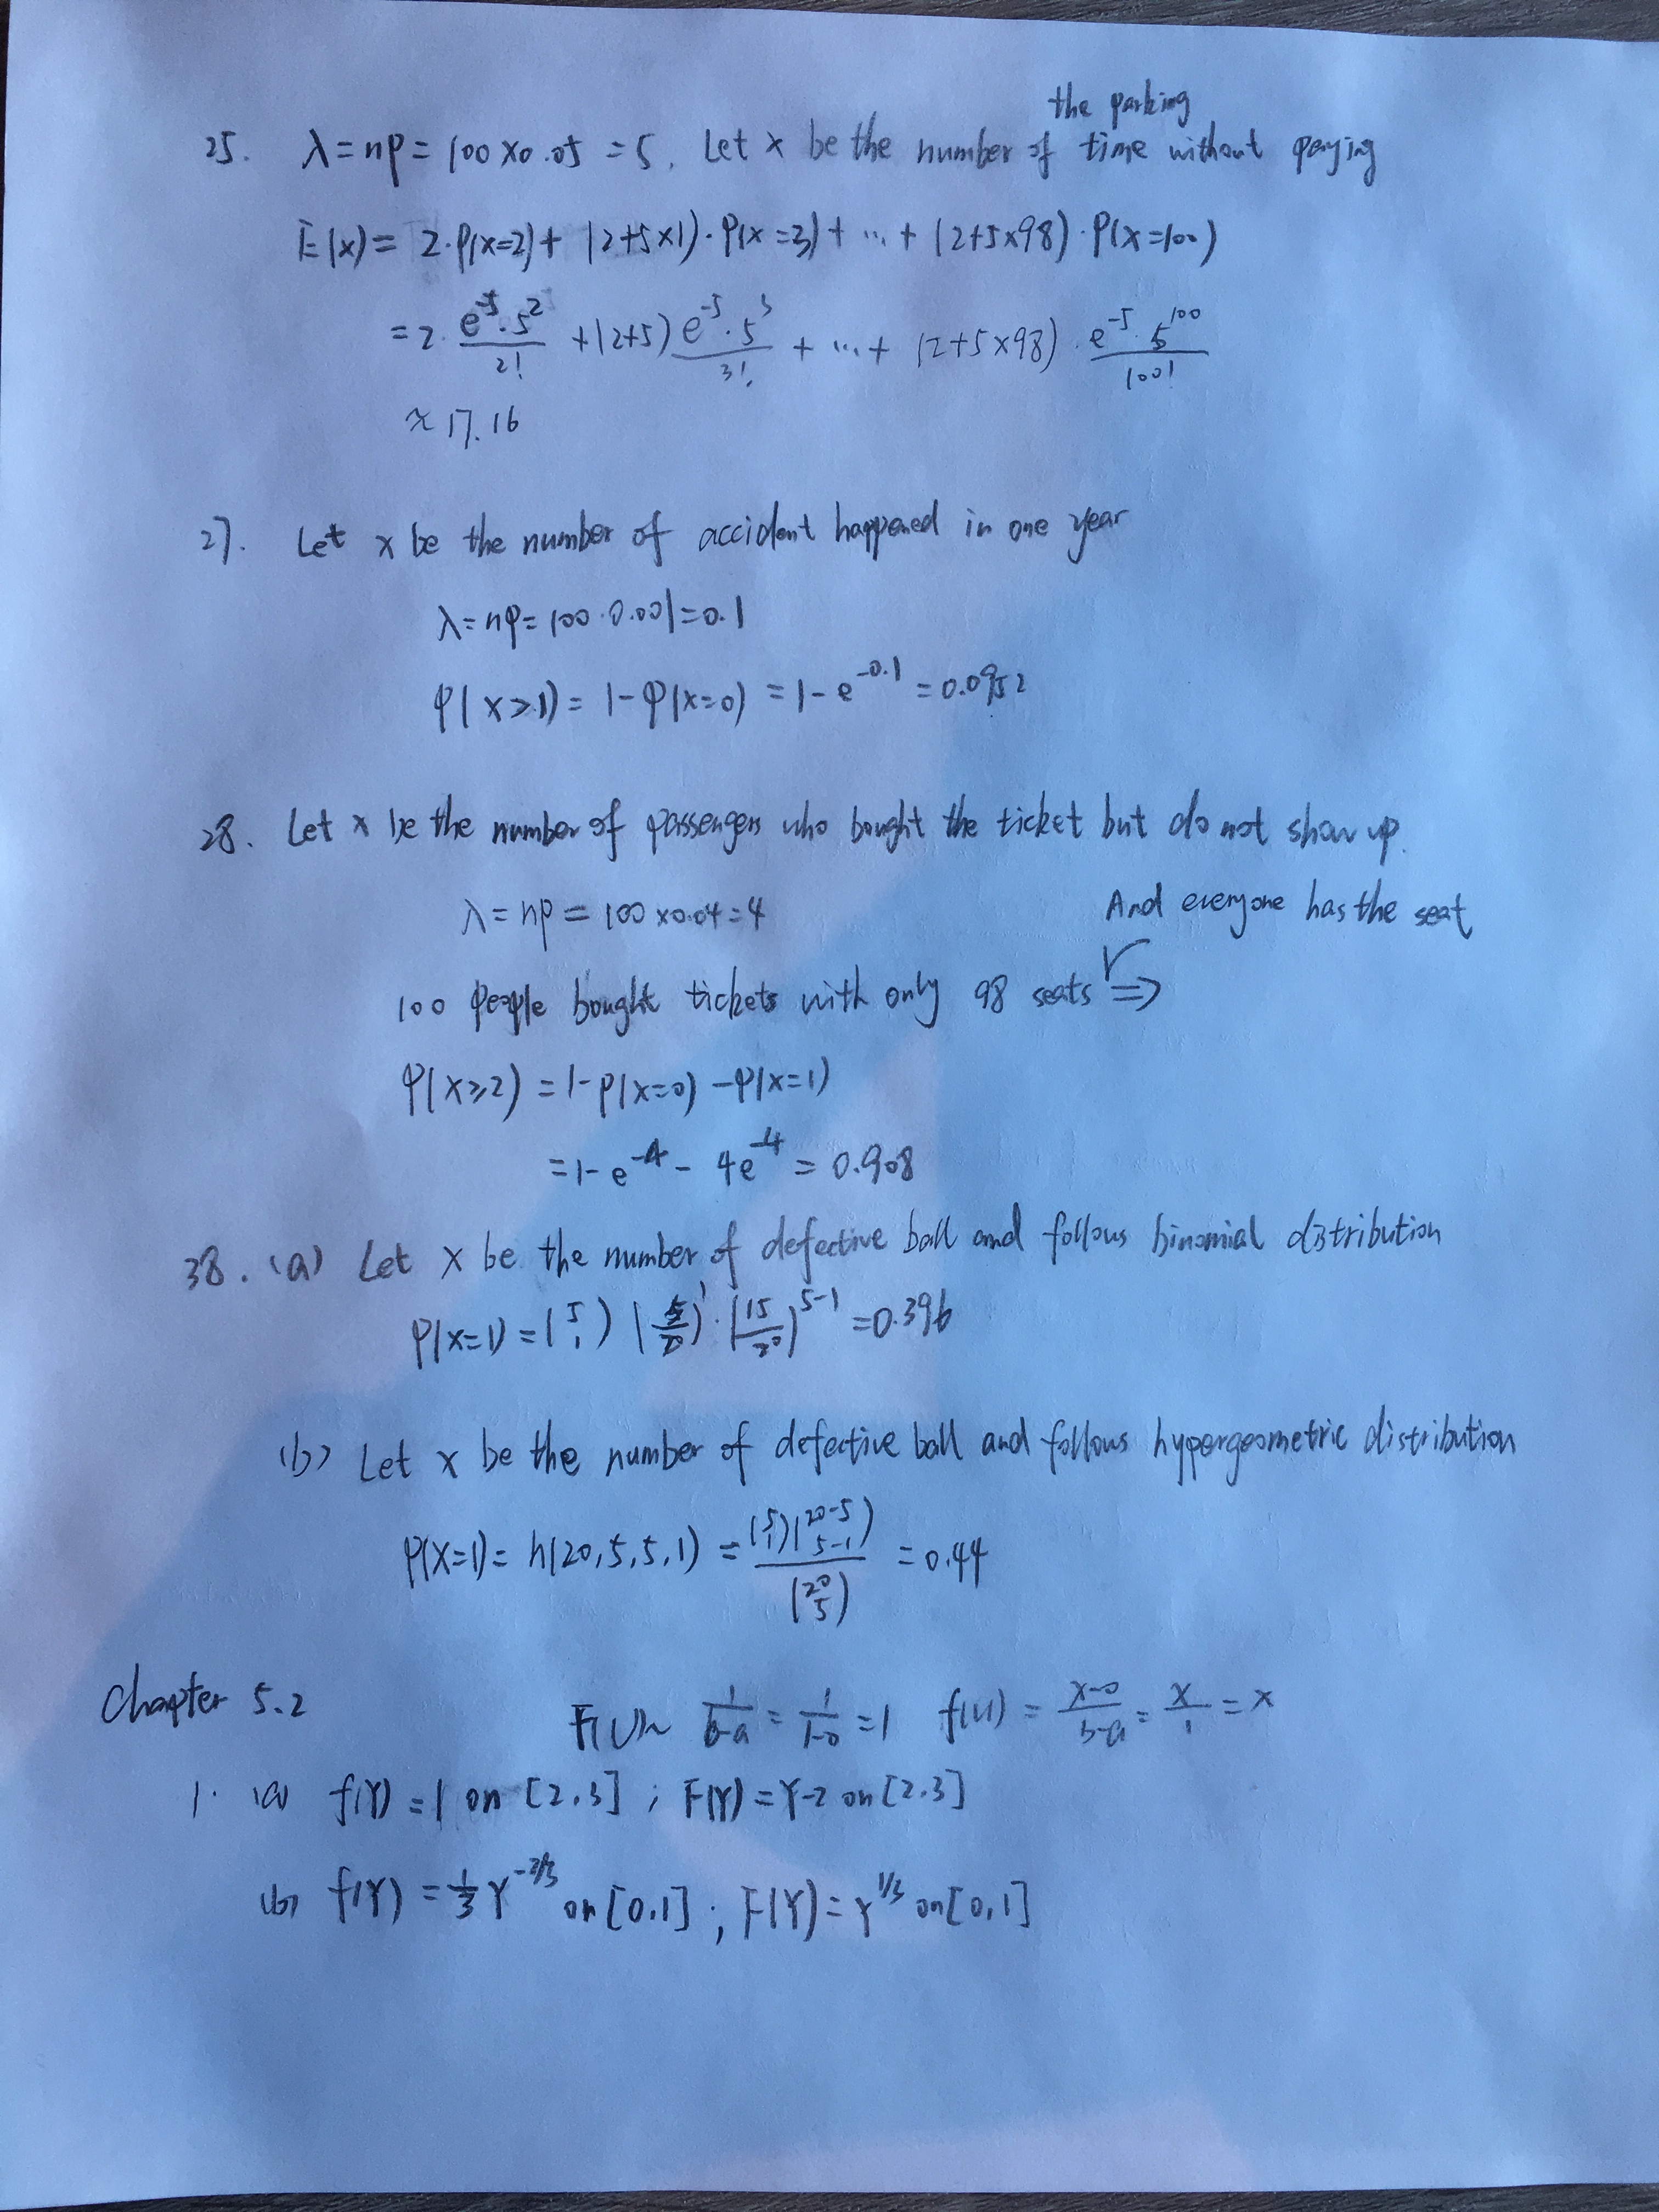 the parking
25. λ = np = 100 × 0.05 = 5. Let x be the number of time without paying
E(x) = 2·P(x=2) + (2+5×1)·P(x=3) + ... + (2+5×98)·P(x=100)
= 2·e^-5·5^2/2! + (2+5) e^-5·5^3/3! + ... + (2+5×98)·e^-5·5^100/100!
≈ 17.16
27. Let x be the number of accident happened in one year
λ = np = 100·0.001 = 0.1
P(x≥1) = 1-P(x=0) = 1-e^-0.1 = 0.0952
28. Let x be the number of passengers who bought the ticket but do not show up.
λ = np = 100×0.04 = 4
And everyone has the seat
100 people bought tickets with only 98 seats ⇒
P(x≥2) = 1-P(x=0) -P(x=1)
= 1-e^-4 - 4e^-4 = 0.908
38. (a) Let x be the number of defective ball and follows binomial distribution
P(x=1) = (5 1) (5/20)^1·(15/20)^5-1 = 0.396
(b) Let x be the number of defective ball and follows hypergeometric distribution
P(X=1) = h(20,5,5,1) = (5 1)(20-5 5-1)/(20 5) = 0.44
Chapter 5.2
F(U)~ 1/b-a = 1/1-0 = 1 f(U) = x-0/b-a = x/1 = x
1. (a) f(Y) = 1 on [2,3] ; F(Y) = Y-2 on [2,3]
(b) f(Y) = 1/3 Y^-2/3 on [0,1] ; F(Y) = Y^1/3 on [0,1]